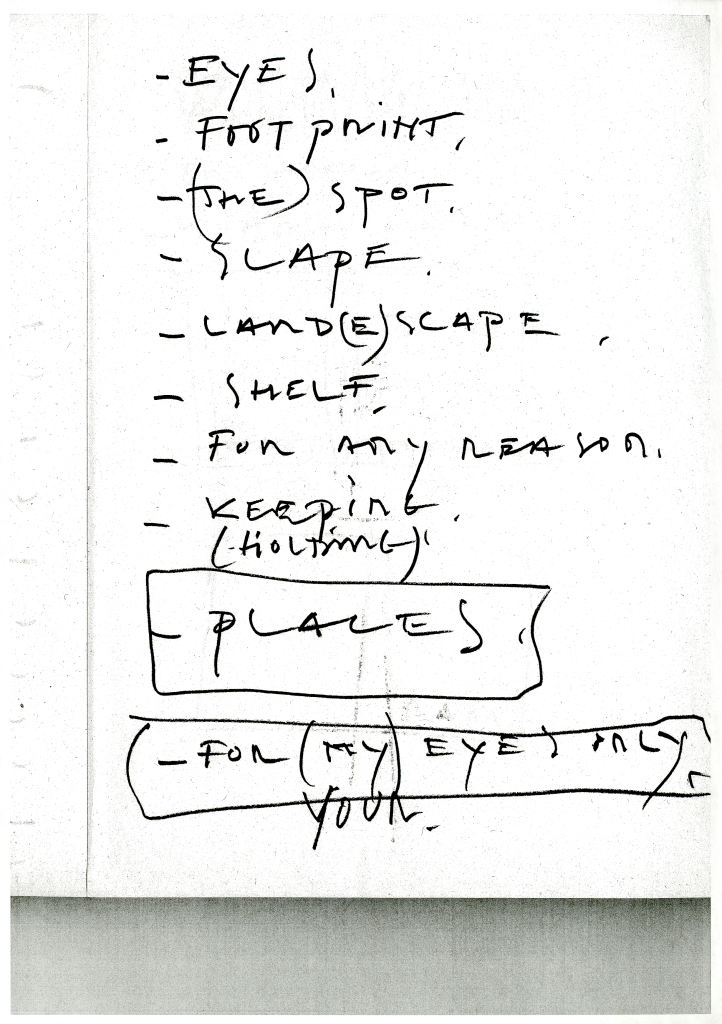 - EYES.
- FOOTPRINT.
- (THE) SPOT.
- SCAPE.
- LAND(E)SCAPE.
- SHELF.
- FOR ANY REASON.
- KEEPING.
(HOLDING)
- PLACES.
(- FOR (MY) EYES ONLY.
YOUR.